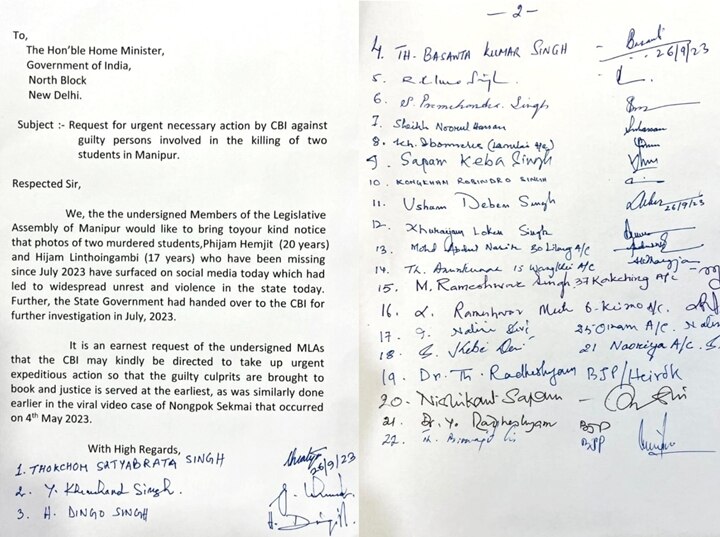 To,
The Hon'ble Home Minister,
Government of India,
North Block
New Delhi.
Subject :- Request for urgent necessary action by CBI against
guilty persons involved in the killing of two
students in Manipur.
Respected Sir,
We, the undersigned Members of the Legislative
Assembly of Manipur would like to bring toyour kind notice
that photos of two murdered students,Phijam Hemjit (20 years)
and Hijam Linthoingambi (17 years) who have been missing
since July 2023 have surfaced on social media today which had
led to widespread unrest and violence in the state today.
Further, the State Government had handed over to the CBI for
further investigation in July, 2023.
It is an earnest request of the undersigned MLAs
that the CBI may kindly be directed to take up urgent
expeditious action so that the guilty culprits are brought to
book and justice is served at the earliest, as was similarly done
earlier in the viral video case of Nongpok Sekmai that occurred
on 4th May 2023.
With High Regards,
1. THOKCHOM SATYABRATA SINGH
26/9/23
2. Y. Khemchand Singh.
3. H. DINGO SINGH
- 2 -
4. TH. BASANTA KUMAR SINGH - 26/9/23
5. Singh
6. S. Premchandra Singh
7. Sheikh Noorul Hassan
8. Kh. Ibomcha
9. Sapam Keba Singh
10. KONGKHAM ROBINDRO SINGH
11. Usham Deben Singh 26/9/23
12. Khuraijam Loken Singh
13. Mohd Abdul Nasir 30 Lilong A/C
14. Th. Arunkumar 15 Wangkhei A/C
15. M. Rameshwar Singh 37 Kakching A/C
16. L. Rameshwor 6-Keirao A/c.
17. Devi 25 Oinam A/C.
18. S. Kebi Devi 21 Naoriya A/C.
19. Dr. Th. Radheshyam BJP/Heirok
20. Nishikant Sapam -
21. Dr. Y. Radheshyam BJP
22. BJP